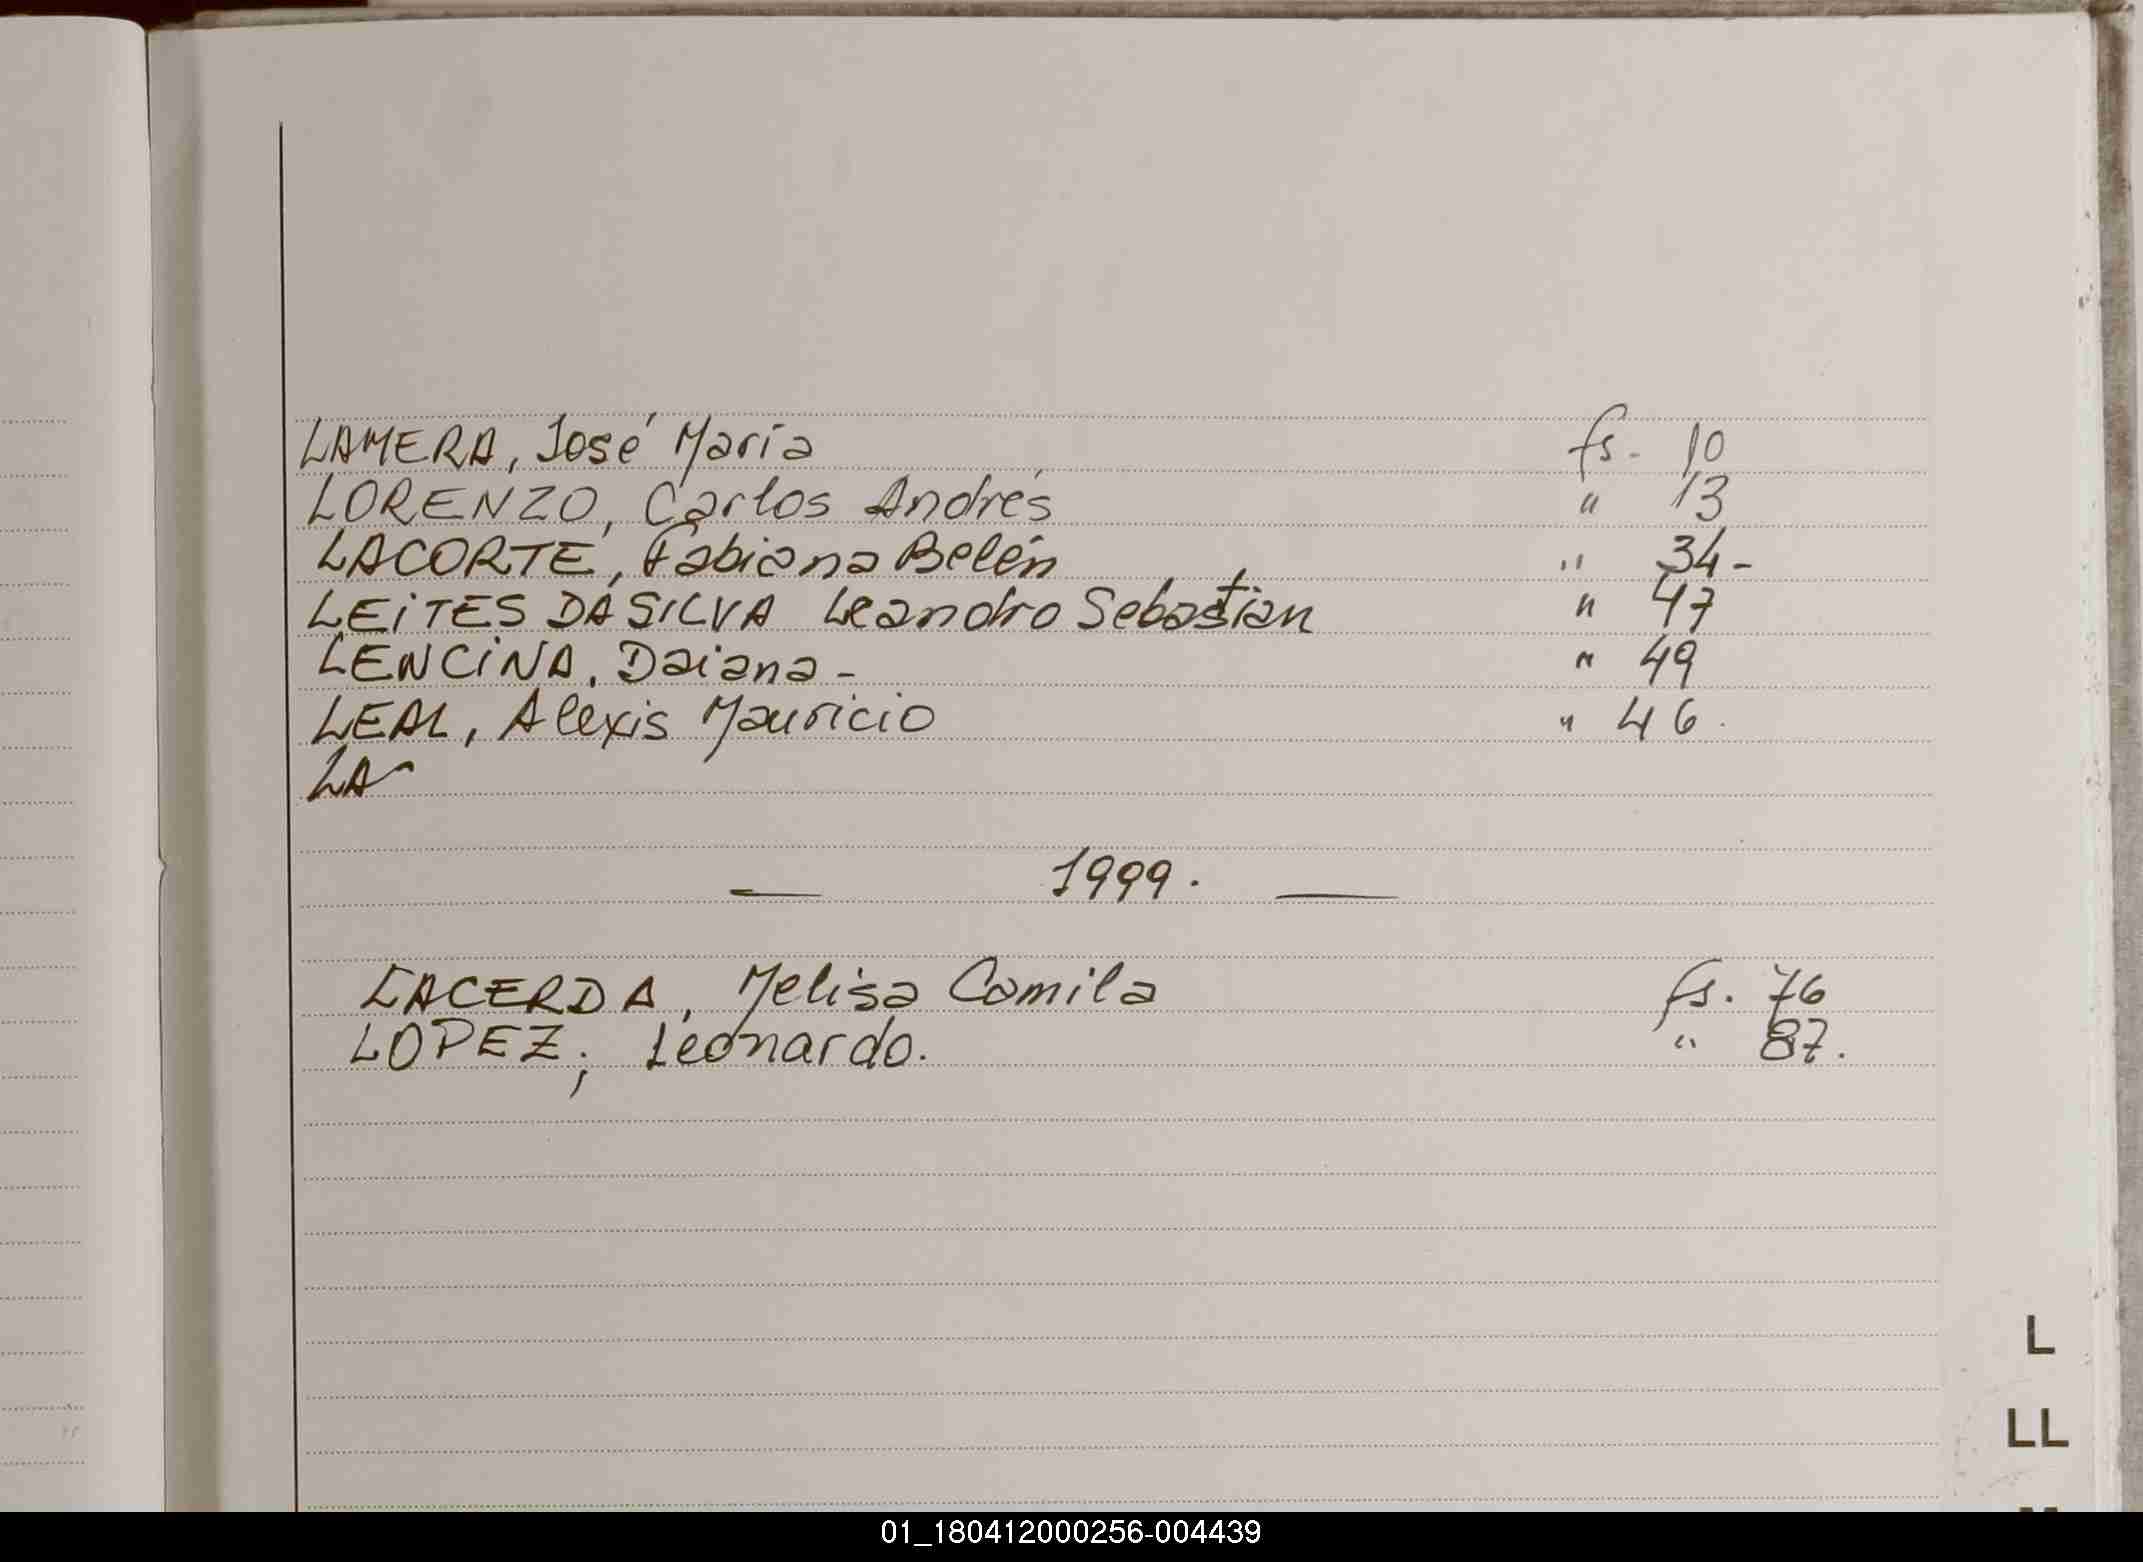 LAMERA, José María fs. 10
LORENZO, Carlos Andrés " 13
LACORTE, Fabiana Belén " 34-
LEiTES DA SILVA Leandro Sebastian " 47
LENCiNA, Daiana - " 49
LEAL, Alexis Mauricio " 46.
LA
1999.
LACERDA, Melisa Camila fs. 76
LOPEZ; Leonardo. " 87.
L
LL
01_180412000256-004439